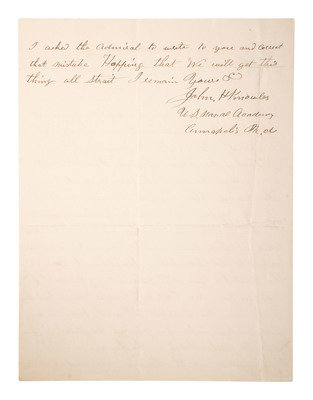 I asked the Admiral to write to you and correct
that mistake Hopping that We will get this
thing all Strait I remain Yours &c
John H Knowles
U S Naval Academy
Annapolis Md